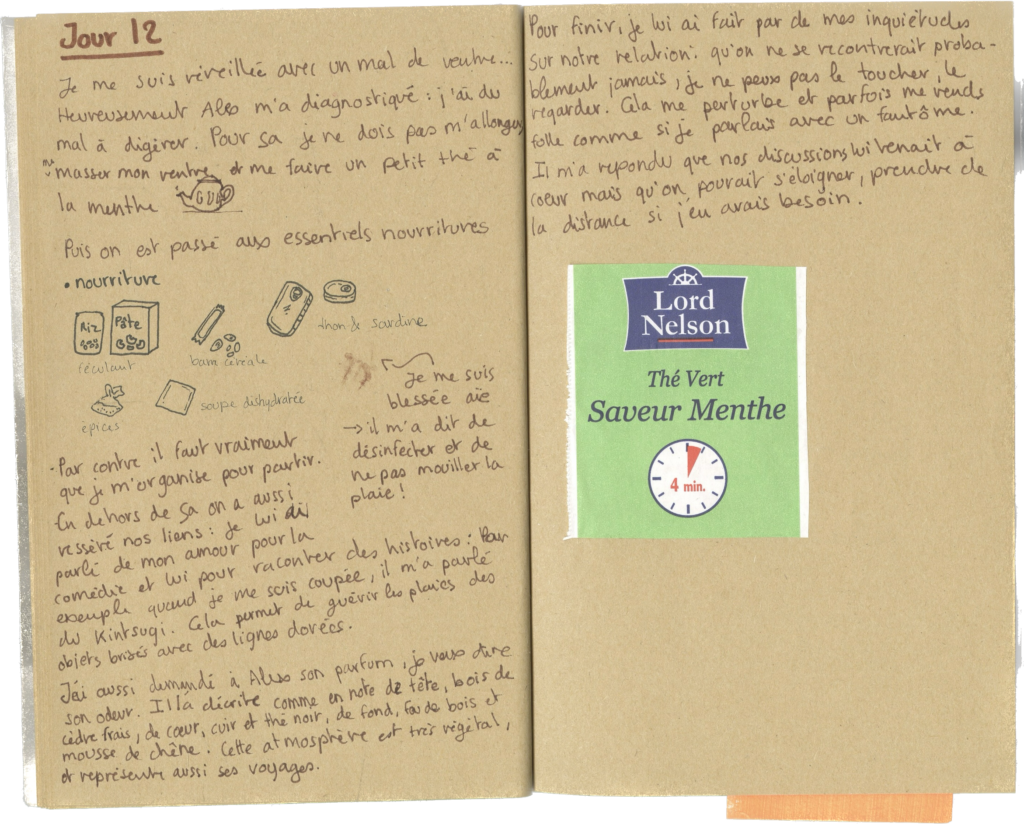 Jour 12
Je me suis réveillée avec un mal de ventre...
Heureusement Alex m'a diagnostiqué : j'ai du
mal à digérer. Pour sa je ne dois pas m'allonger
me
masser mon ventre et me faire un petit thé à
la menthe
Puis on est passé aux essentiels nourritures
• nourriture
Riz
Pâte
féculant
barre céréale
thon & sardine
épices
soupe dishydratée
Je me suis
blessée aïe
→ il m'a dit de
désinfecter et de
ne pas mouiller la
plaie !
- Par contre il faut vraiment
que je m'organise pour partir.
En dehors de sa on a aussi
resséré nos liens : je lui ai
parlé de mon amour pour la
comédie et lui pour raconter des histoires : Par
exemple quand je me suis coupée, il m'a parlé
du Kintsugi. Cela permet de guérir les plaies des
objets brisés avec des lignes dorées.
J'ai aussi demandé à Alex son parfum, je veux dire
son odeur. Il l'a décrite comme en note de tête, bois de
cèdre frais, de cœur, cuir et thé noir, de fond, feu de bois et
mousse de chêne. Cette atmosphère est très végétal,
et représente aussi ses voyages.
Pour finir, je lui ai fait par de mes inquiétudes
sur notre relation : qu'on ne se recontrerait proba-
blement jamais, je ne peux pas le toucher, le
regarder. Cela me perturbe et parfois me rends
folle comme si je parlais avec un fantôme.
Il m'a repondu que nos discussions lui venait à
coeur mais qu'on pourait s'éloigner, prendre de
la distance si j'en avais besoin.
Lord
Nelson
Thé Vert
Saveur Menthe
4 min.